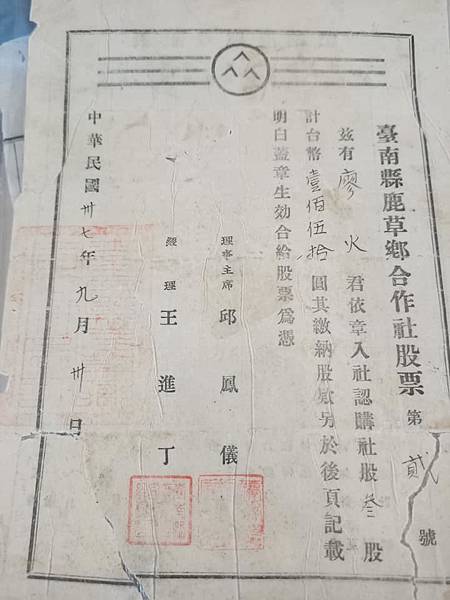 臺南縣鹿草鄉合作社股票 第 貳 號
茲有廖火君依章入社認購社股叄股
計台幣壹佰伍拾圓其繳納股款另於後頁記載
明白蓋章生効合給股票爲憑
理事主席 邱鳳儀
經理 王進丁
中華民國卅七年九月卅日